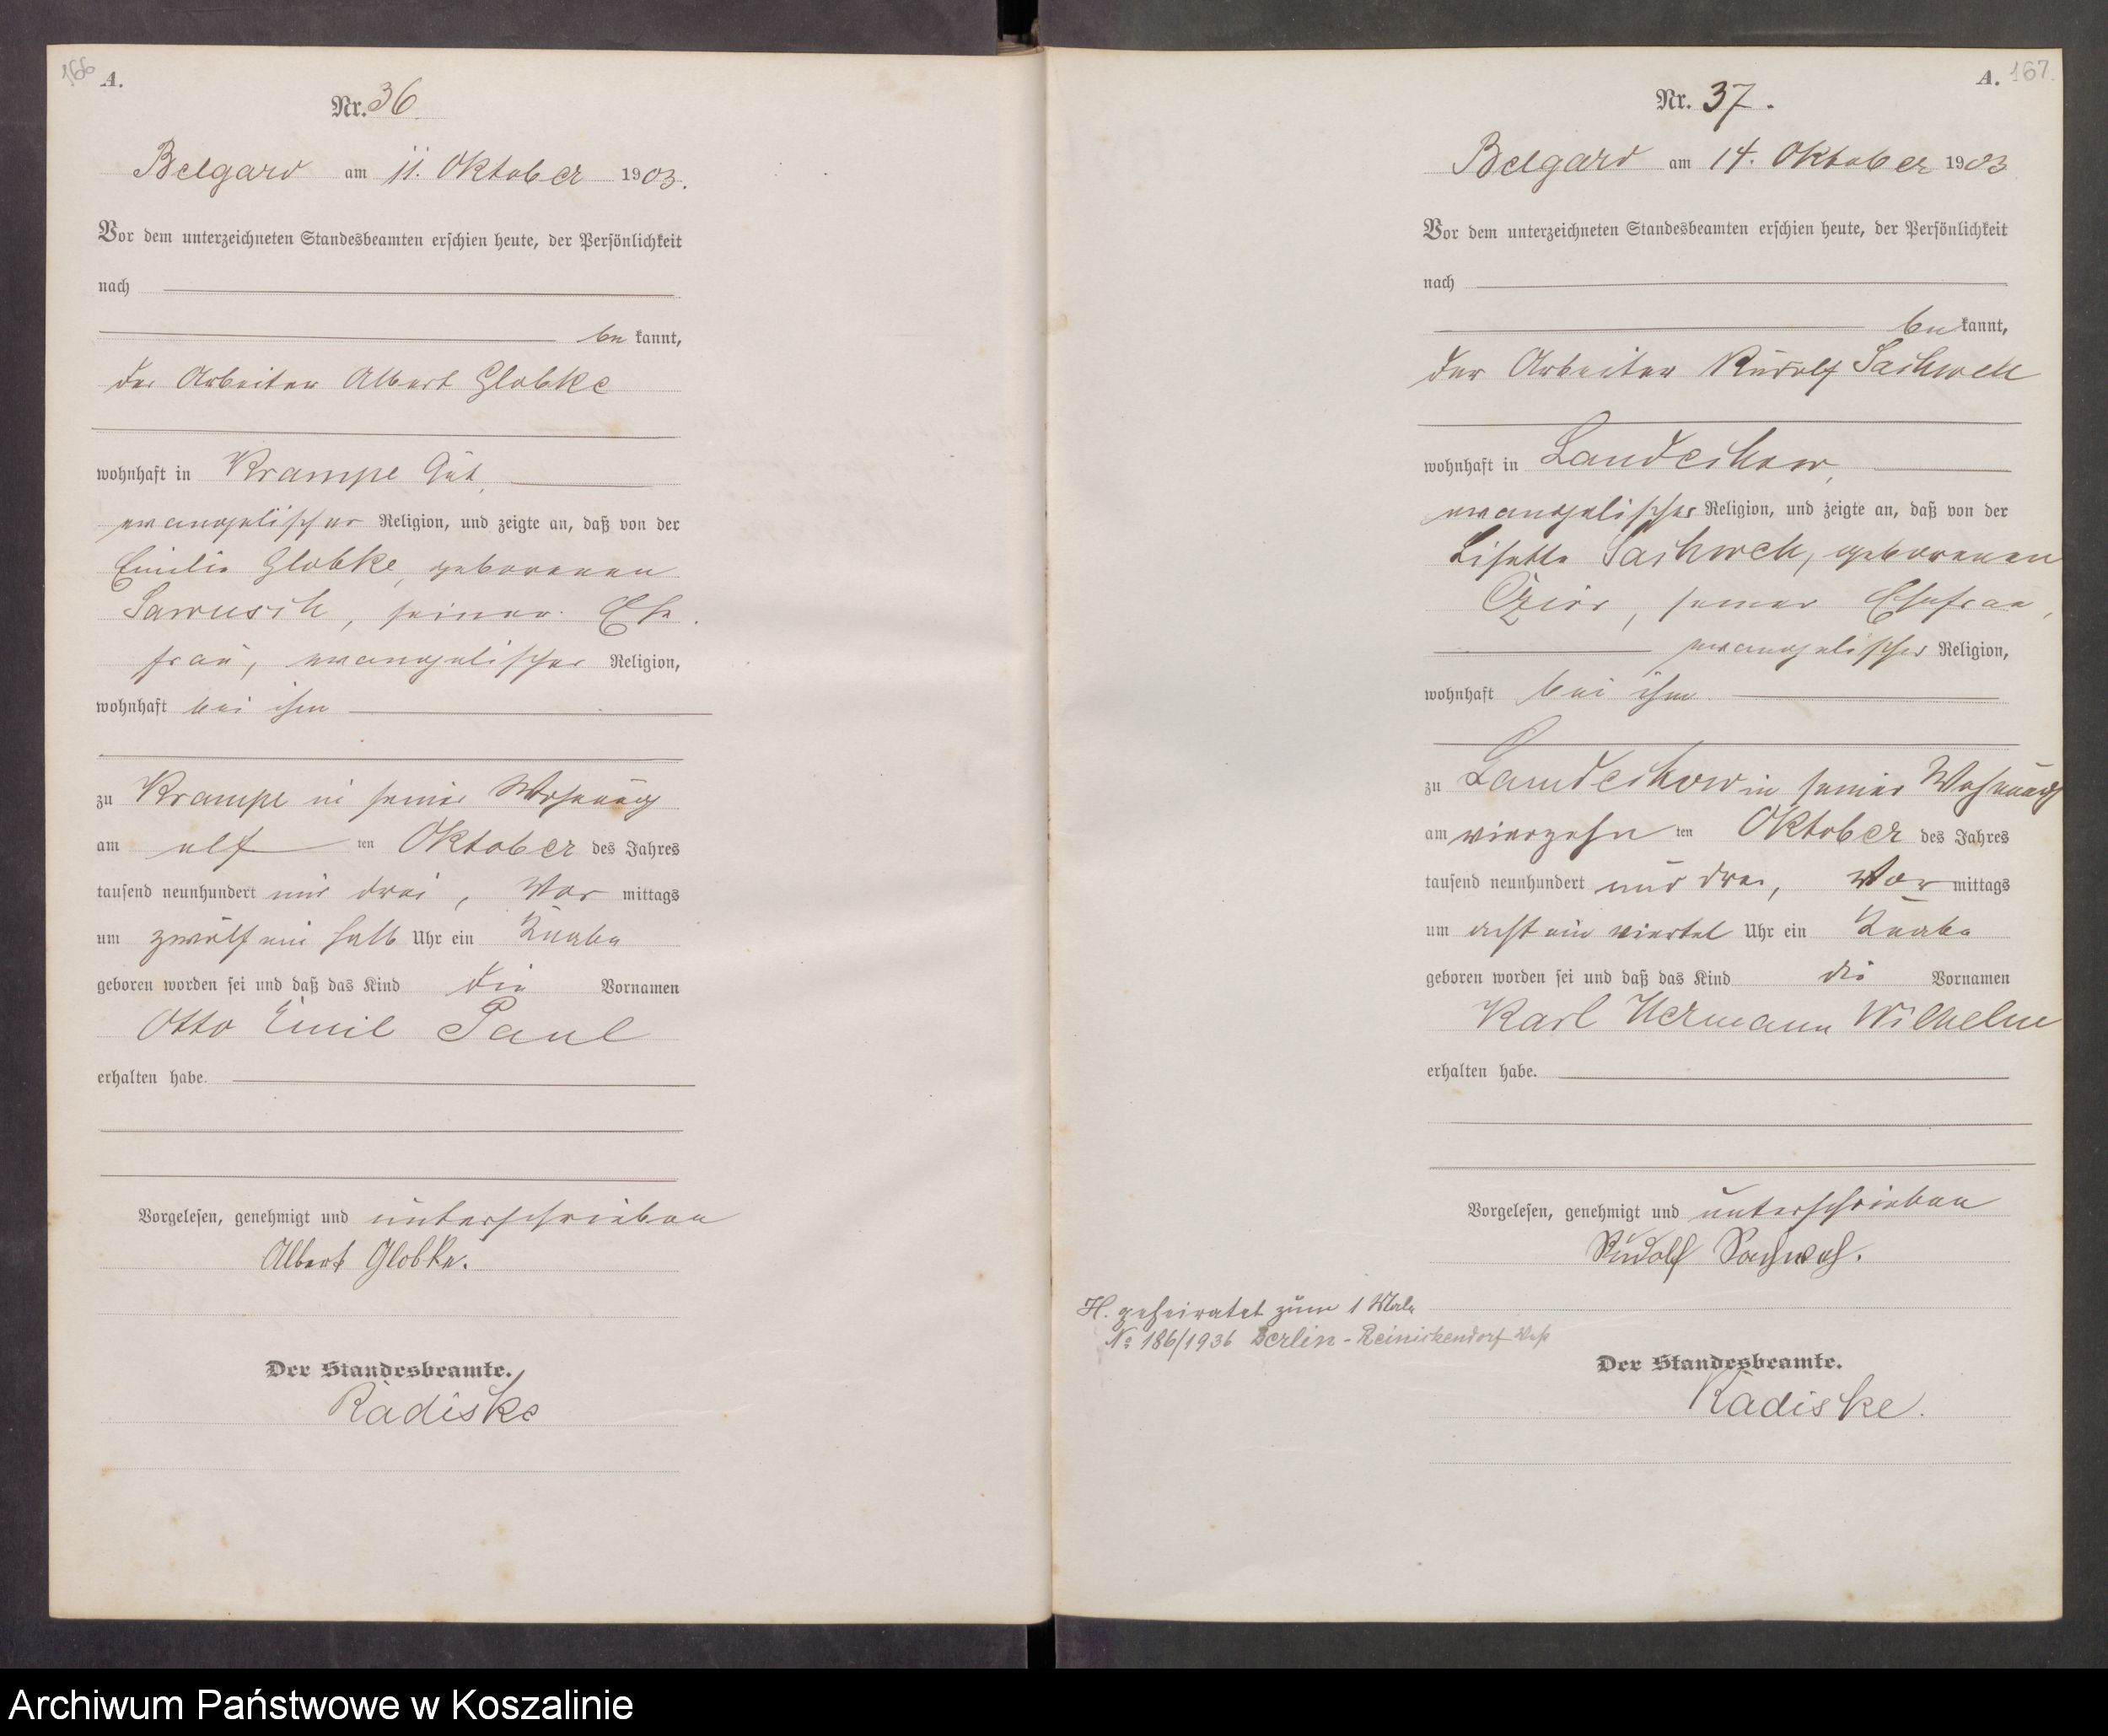 166
A.
Nr. 36.
Belgard am 11. Oktober 1903.
Vor dem unterzeichneten Standesbeamten erschien heute, der Persönlichkeit
nach
be kannt,
der Arbeiter Albert Globke
wohnhaft in Krampe Gut,
evangelischer Religion, und zeigte an, daß von der
Emilie Globke, geborenen
seiner Ehe
frau, evangelischer Religion,
wohnhaft bei ihm
zu Krampe in seiner Wohnung
am elf ten Oktober des Jahres
tausend neunhundert und drei, Vor mittags
um zwölf ein halb Uhr ein Knabe
geboren worden sei und daß das Kind die Vornamen
Otto Emil Paul
erhalten habe.
Vorgelesen, genehmigt und unterschrieben
Albert Globke.
Der Standesbeamte.
Radiske
A. 167.
Nr. 37.
Belgard am 14. Oktober 1903
Vor dem unterzeichneten Standesbeamten erschien heute, der Persönlichkeit
nach
be kannt,
der Arbeiter Rudolf Sachweh
wohnhaft in Landechow,
evangelischer Religion, und zeigte an, daß von der
Lisette Sachweh, geborenen
seiner Ehefrau,
evangelischer Religion,
wohnhaft bei ihm
zu Landechow in seiner Wohnung
am vierzehn ten Oktober des Jahres
tausend neunhundert und drei, Vor mittags
um acht ein viertel Uhr ein Knabe
geboren worden sei und daß das Kind die Vornamen
Karl Hermann Wilhelm
erhalten habe.
Vorgelesen, genehmigt und unterschrieben
Rudolf Sachweh.
H. geheiratet zum 1 Male
No 186/1936 Berlin-Reinickendorf
Der Standesbeamte.
Radiske.
Archiwum Państwowe w Koszalinie